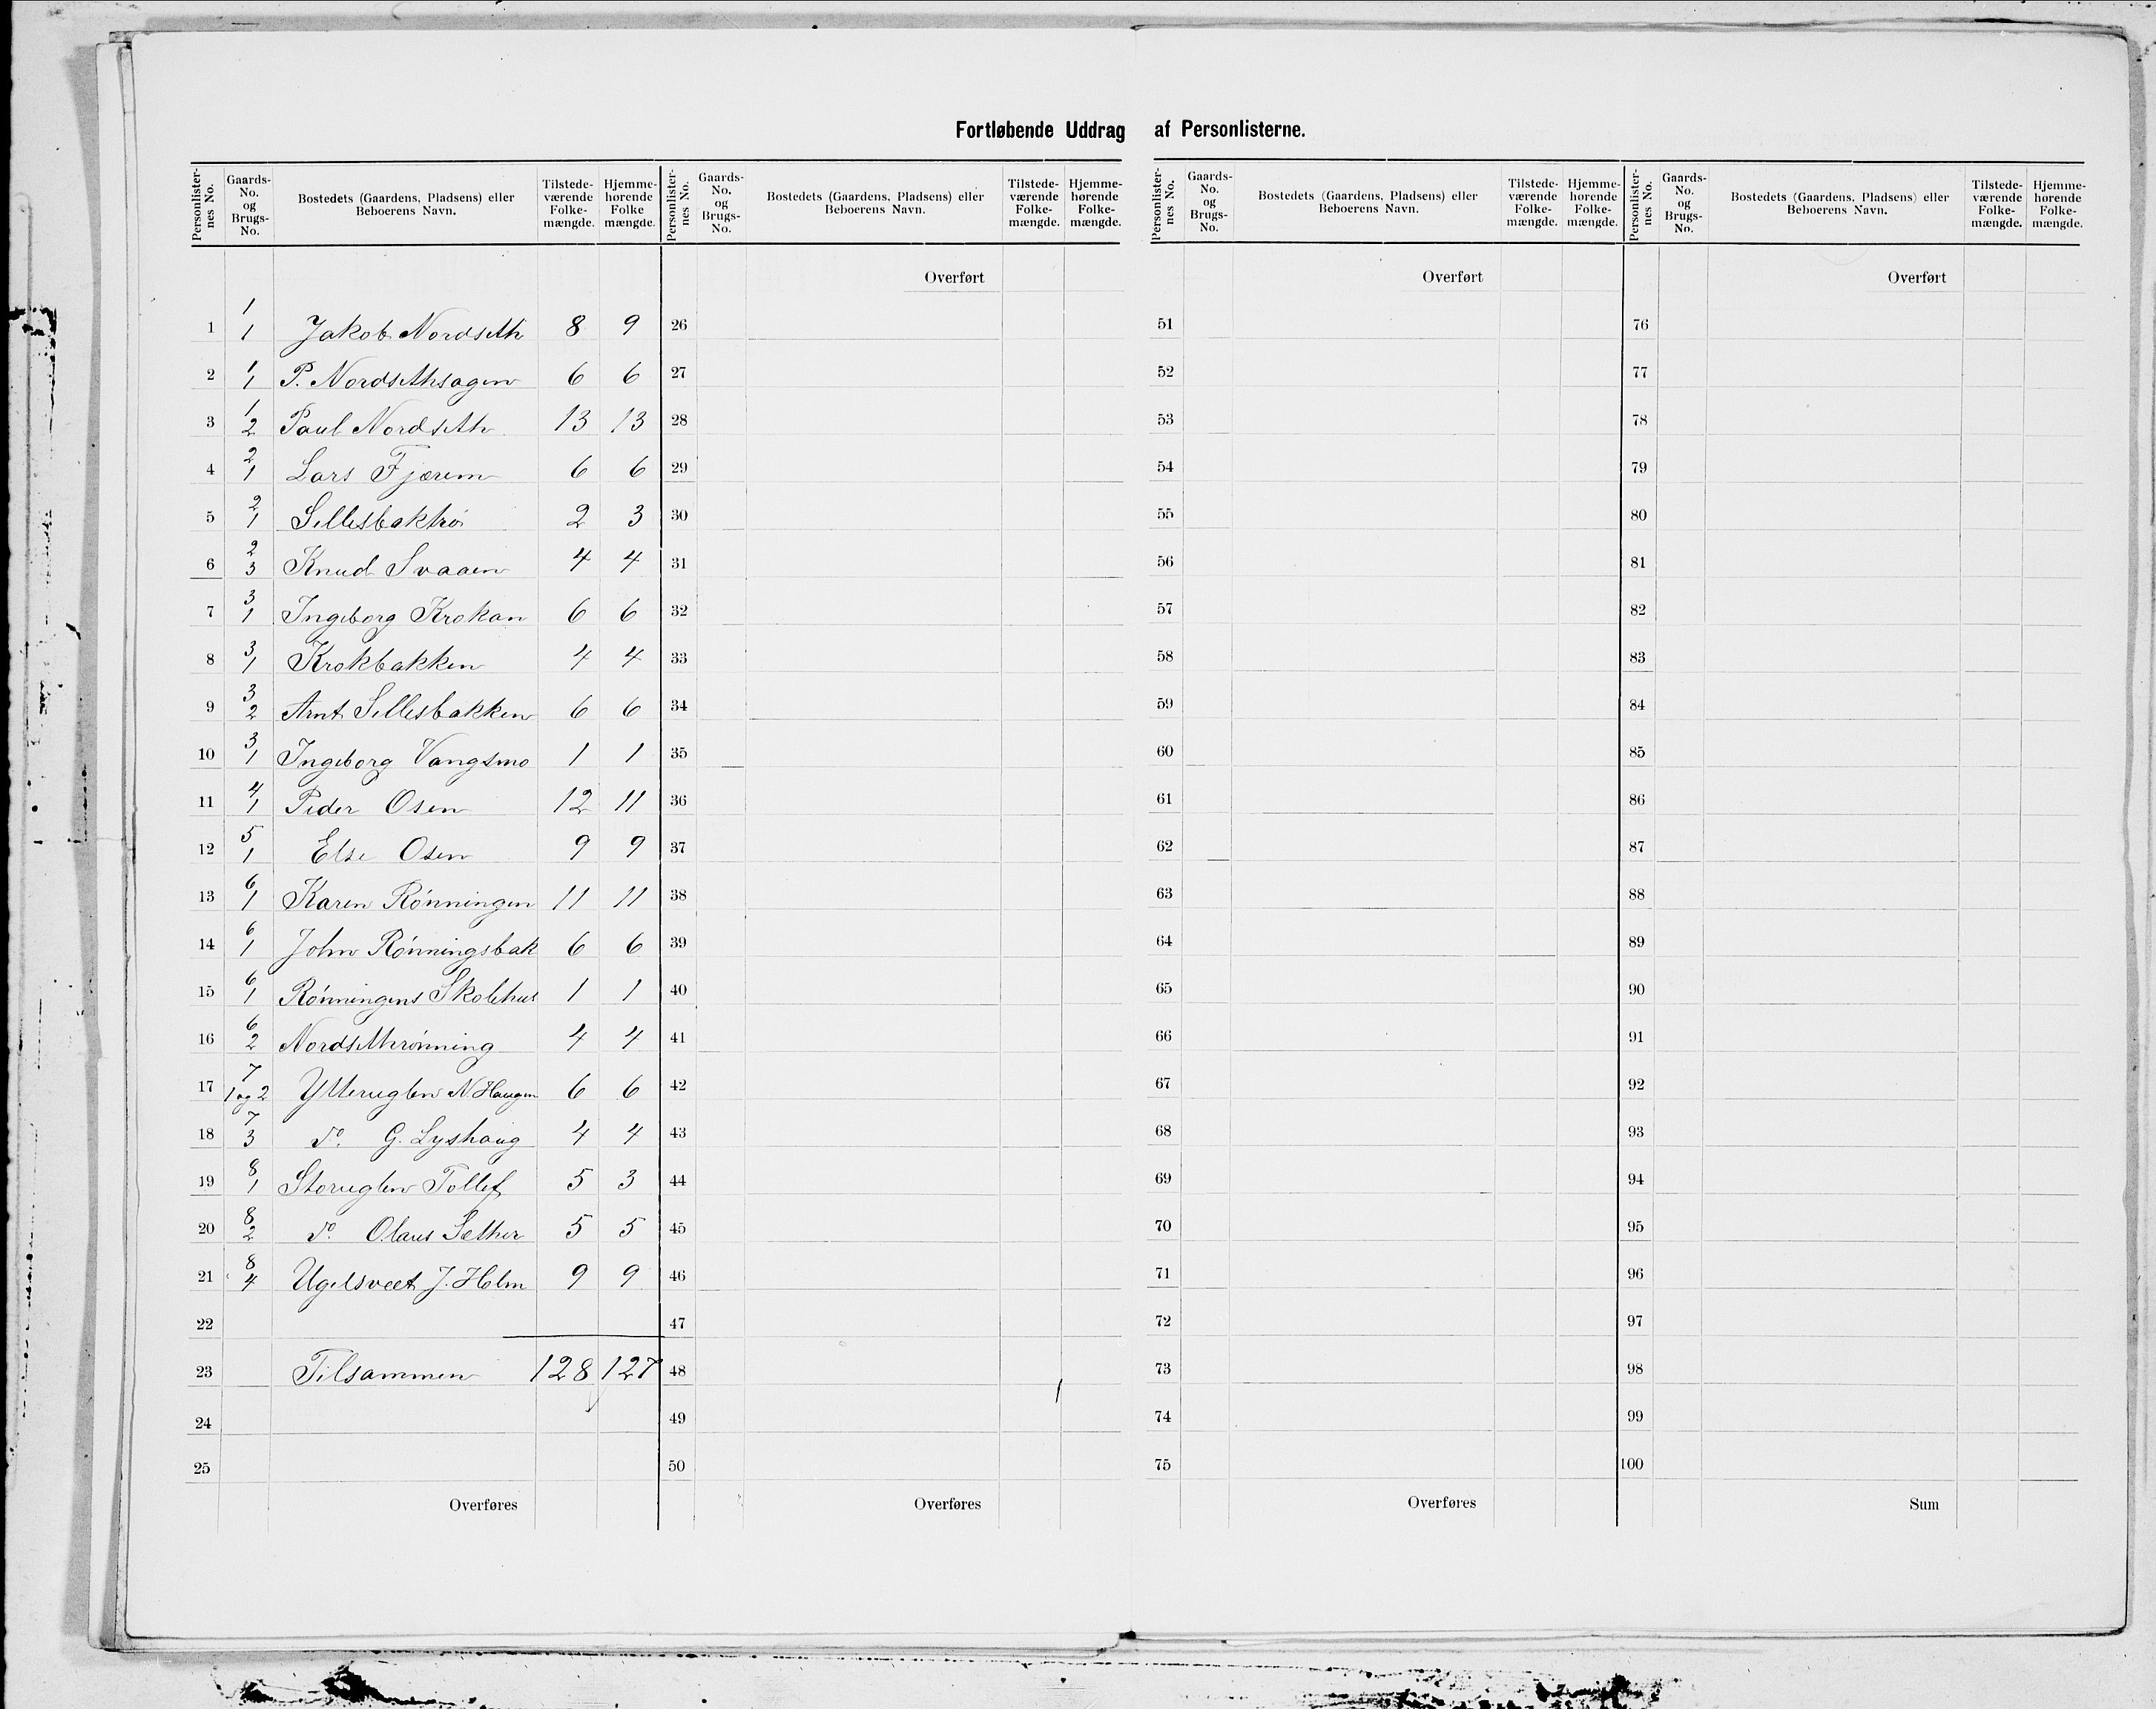 Fortløbende Uddrag af Personlisterne.
Personlister-nes No. Gaards-No. og Brugs-No. Bostedets (Gaardens, Pladsens) eller Beboerens Navn. Tilstede-værende Folke-mængde. Hjemme-hørende Folke mængde.
Personlister-nes No. Gaards-No. og Brugs-No. Bostedets (Gaardens, Pladsens) eller Beboerens Navn. Tilstede-værende Folke-mængde. Hjemme-hørende Folke-mængde.
Personlister-nes No. Gaards-No. og Brugs-No. Bostedets (Gaardens, Pladsens) eller Beboerens Navn. Tilstede-værende Folke-mængde. Hjemme-hørende Folke-mængde.
Personlister-nes No. Gaards-No. og Brugs-No. Bostedets (Gaardens, Pladsens) eller Beboerens Navn. Tilstede-værende Folke-mængde. Hjemme-hørende Folke-mængde.
Overført Overført Overført
1 1/1 Jakob Nordseth 8 9 26 51 76
2 1/1 P. Nordsethsagen 6 6 27 52 77
3 1/2 Paul Nordseth 13 13 28 53 78
4 2/1 Lars Fjærem 6 6 29 54 79
5 2/1 Sillesbaktrø 2 3 30 55 80
6 2/3 Knud Svaaen 4 4 31 56 81
7 3/1 Ingeborg Krokan 6 6 32 57 82
8 3/1 Krokbakken 4 4 33 58 83
9 3/2 Arnt Sillesbakken 6 6 34 59 84
10 3/1 Ingeborg Vangsmo 1 1 35 60 85
11 4/1 Peder Osen 12 11 36 61 86
12 5/1 Else Osen 9 9 37 62 87
13 6/1 Karen Rønningen 11 11 38 63 88
14 6/1 John Rønningsbak 6 6 39 64 89
15 6/1 Rønningens Skolehus 1 1 40 65 90
16 6/2 Nordsethrønning 4 4 41 66 91
17 7/1 og 2 Ytteruglen N. Haugen 6 6 42 67 92
18 7/3 do. G. Lyshaug 4 4 43 68 93
19 8/1 Storuglen Tollef 5 3 44 69 94
20 8/2 do. Olaus Sæther 5 5 45 70 95
21 8/4 Ugelsveet J. Holm 9 9 46 71 96
22 47 72 97
23 Tilsammen 128 127 48 73 98
24 49 74 99
25 50 75 100
Overføres Overføres Overføres Sum